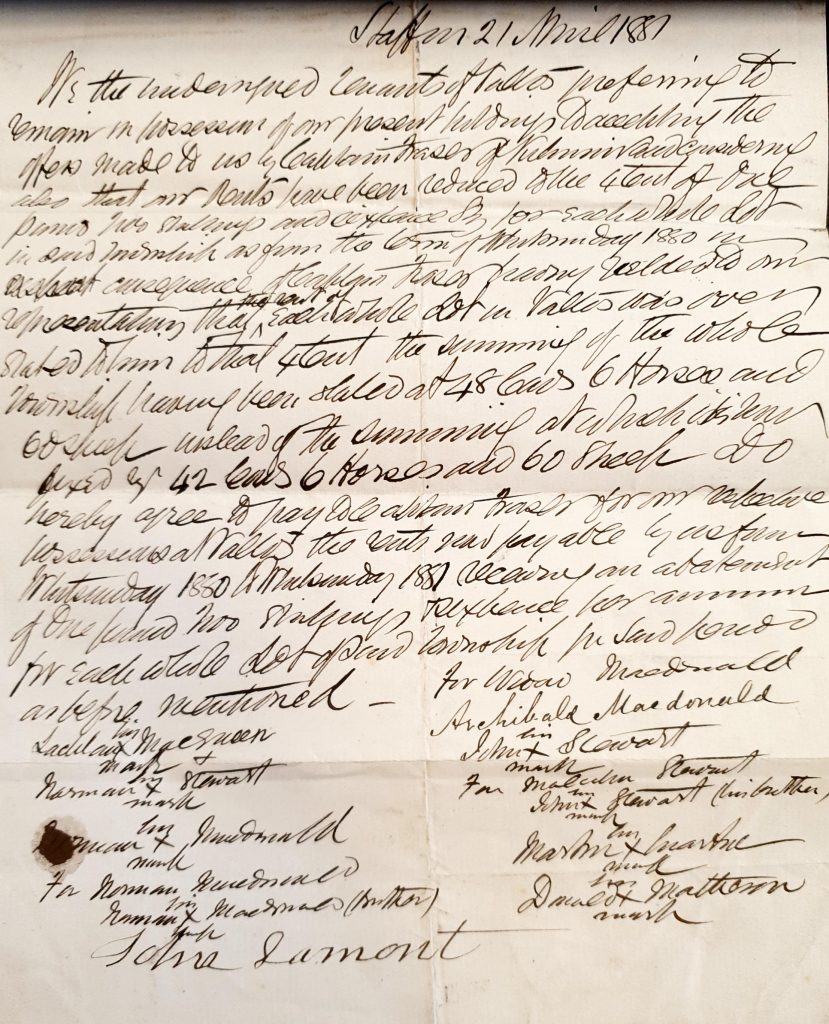 Staffin 21 April 1881
We the undersigned Tenants of Valtos preferring to
remain in possession of our present holdings to accepting the
offers made to us by Captain Fraser of Kilmuir and considering
also that our Rents have been reduced to the extent of One
pound two shillings and sixpence Stg for each whole Lot
in said township as from the term of Whitsunday 1880 in
consequence of Captain Fraser having yielded to our
representations that the rent of each whole Lot in Valtos was over
stated to him to that extent the summing of the whole
Township having been stated at 48 Cows 6 Horses and
60 sheep instead of the summing at which it is now
fixed by 42 Cows 6 Horses and 60 Sheep Do
hereby agree to pay to Captain Fraser for our respective
possessions at Valtos the rents now payable by us from
Whitsunday 1880 to Whitsunday 1881 receiving an abatement
of One pound two shillings & sixpence per annum
for each whole Lot of said township for said period
as before mentioned –
Lachlan his x mark MacEwen
Norman his x mark Stewart
Norman his x mark Macdonald
For Norman Macdonald
Norman his x mark Macdonald (brother)
John Lamont
For Widow Macdonald
Archibald Macdonald
John his x mark Stewart
For Malcolm Stewart
John his x mark Stewart (his brother)
Martin his x mark Martin
Donald his x mark Matheson